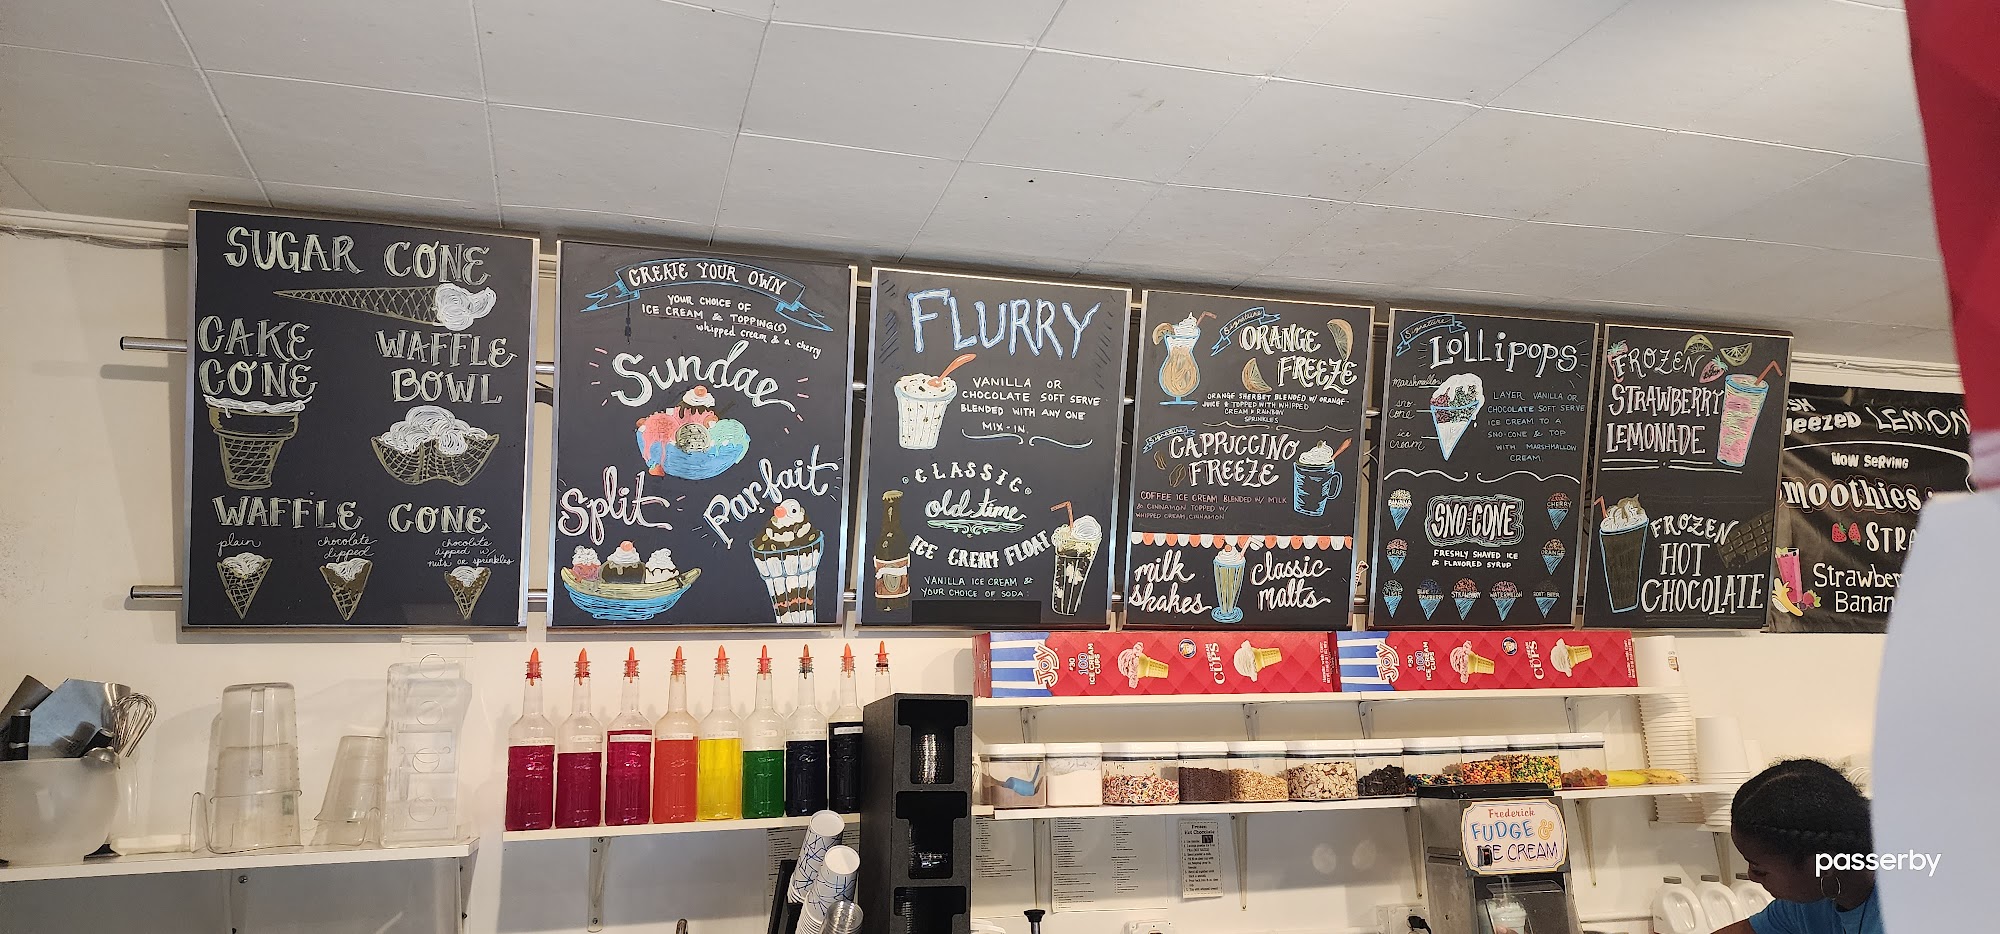 SUGAR CONE
CAKE
CONE
WAFFLE
BOWL
WAFFLE CONE
plain
chocolate
dipped
chocolate
dipped w/
nuts or sprinkles
CREATE YOUR OWN
YOUR CHOICE OF
ICE CREAM & TOPPING(S)
whipped cream & a cherry
Sundae
Split
Parfait
FLURRY
VANILLA OR
CHOCOLATE SOFT SERVE
BLENDED WITH ANY ONE
MIX-IN
CLASSIC
old time
ICE CREAM FLOAT
VANILLA ICE CREAM &
YOUR CHOICE OF SODA:
Signature
ORANGE
FREEZE
ORANGE SHERBET BLENDED W/ ORANGE
JUICE & TOPPED WITH WHIPPED
CREAM & RAINBOW
SPRINKLES
Signature
CAPPUCCINO
FREEZE
COFFEE ICE CREAM BLENDED W/ MILK
& CINNAMON TOPPED W/
WHIPPED CREAM, CINNAMON
milk
shakes
classic
malts
Signature
LOLLIPOPS
marshmallow
sno-
cone
ice
cream
LAYER VANILLA OR
CHOCOLATE SOFT SERVE
ICE CREAM TO A
SNO-CONE & TOP
WITH MARSHMALLOW
CREAM.
BANANA
CHERRY
SNO-CONE
GRAPE
ORANGE
FRESHLY SHAVED ICE
& FLAVORED SYRUP
LIME
BLUE
RASPBERRY
STRAWBERRY
WATERMELON
ROOT BEER
FROZEN
STRAWBERRY
LEMONADE
FROZEN
HOT
CHOCOLATE
LEMON
NOW SERVING
moothies
STRA
Strawber
Banan
JOY
#30
100
ICE CREAM
CUPS
ICE CREAM
CUPS
JOY
#30
100
ICE CREAM
CUPS
ICE CREAM
CUPS
Frozen
Hot Chocolate
Frederick
FUDGE &
ICE CREAM
passerby